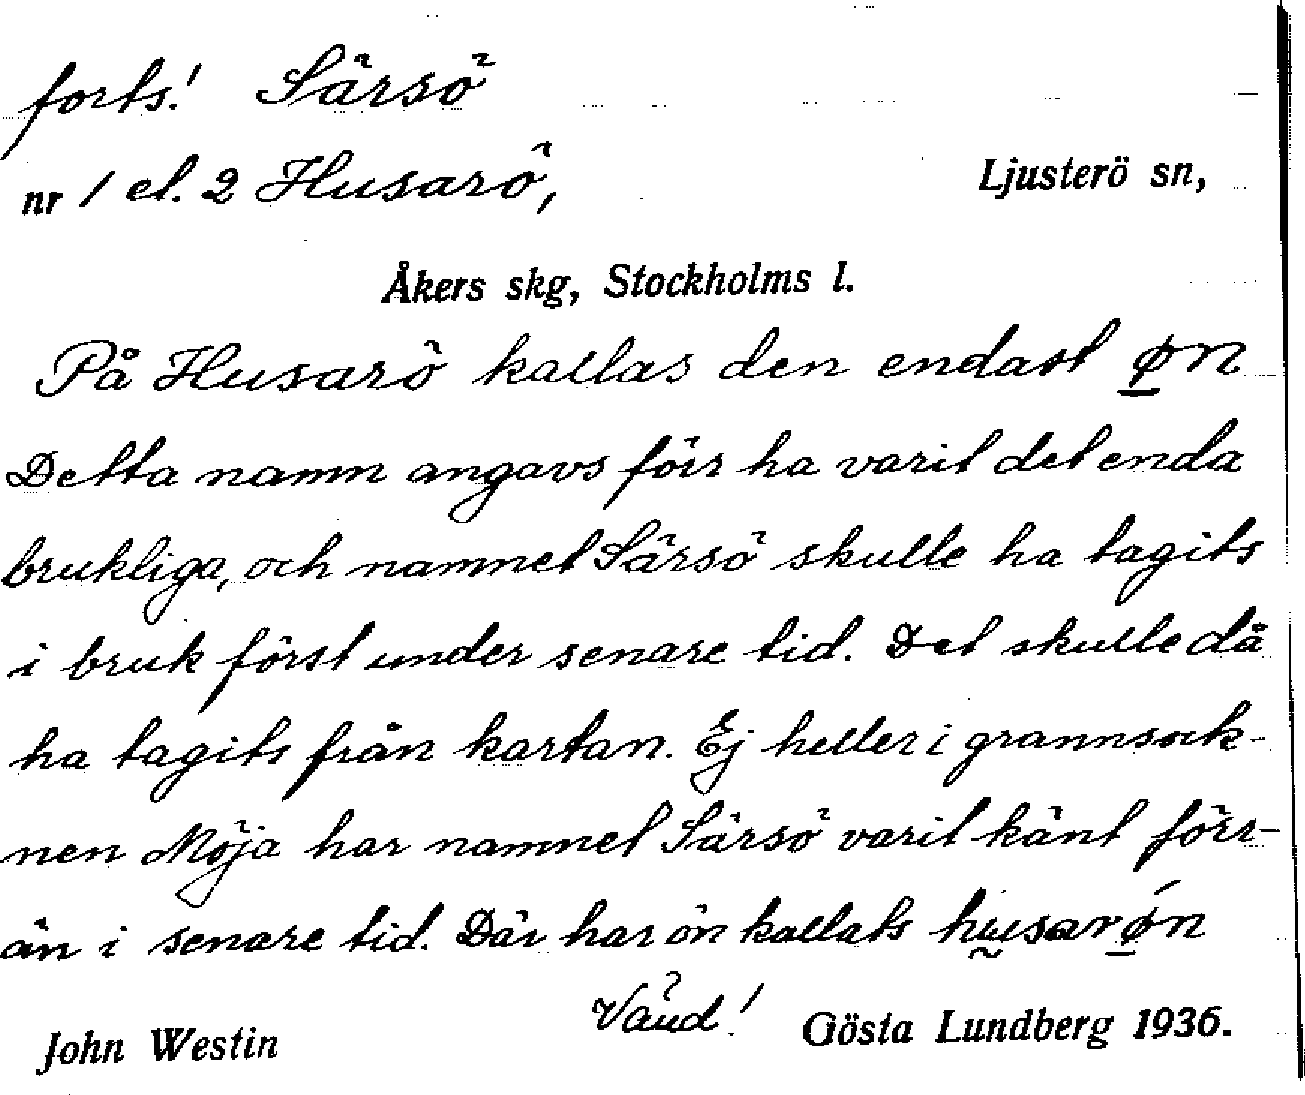 forts.! Särsö
nr 1 el. 2 Husarö, Ljusterö sn,
Åkers skg, Stockholms l.
På Husarö kallas den endast øn
Detta namn angavs förr ha varit det enda
brukliga, och namnet Särsö skulle ha tagits
i bruk först under senare tid. Det skulle då
ha tagits från kartan. Ej heller i grannsock-
nen Möja har namnet Särsö varit känt förr-
än i senare tid. Där har ön kallats husarøn
Vänd!
John Westin Gösta Lundberg 1936.